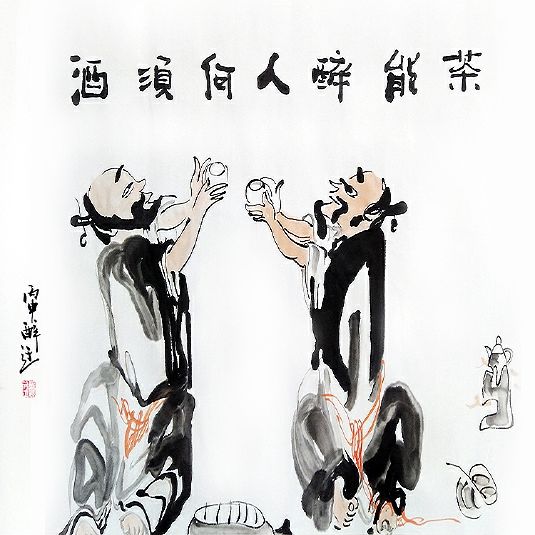 茶能醉人何須酒
丙申醉注